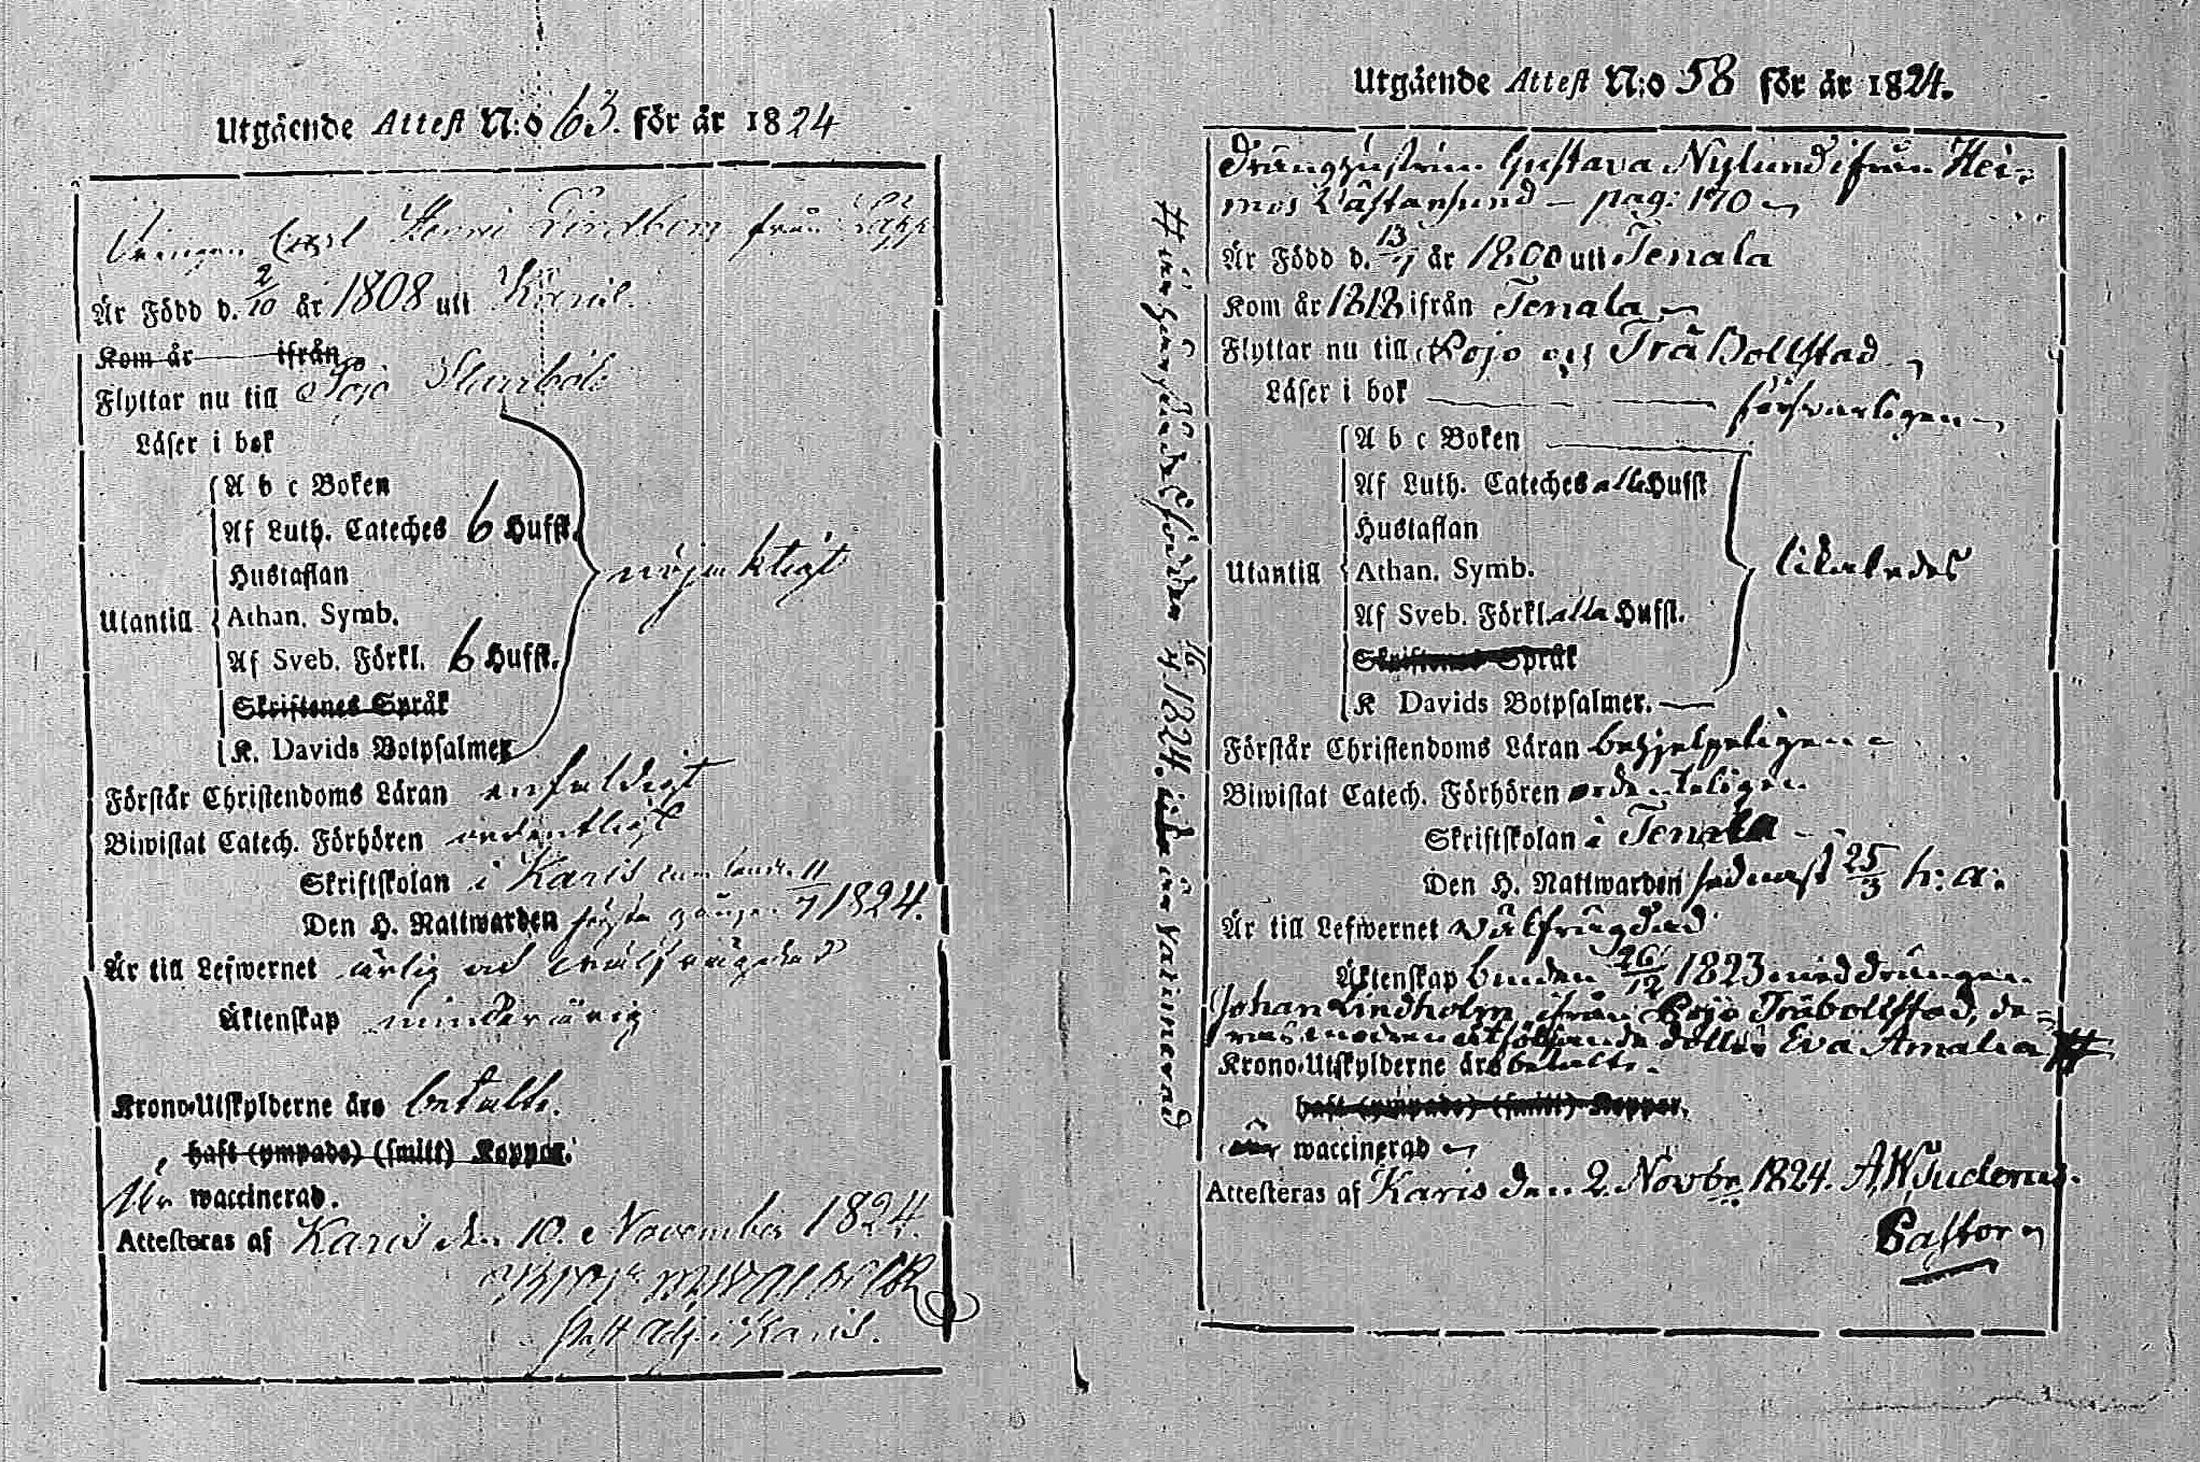 Utgående Attest N:o 63. för år 1824
Drängen Carl Henric Lindbom från Läpp
Är Född d. 2/10 år 1808 uti
Kom år ifrån
Flyttar nu till Pojo Starrböle
Läser i bok
A b c Boken
Af Luth. Cateches 6 Hufst.
Hustaflan
nöjaktigt
Utantill
Athan. Symb.
Af Sveb. Förkl. 6 Hufst.
Skriftenes Språk
K. Davids Botpsalmer
Förstår Christendoms Läran enfaldigt
Biwistat Catech. Förhören ordentligt
Skriftskolan i Karis
Den H. Nattwarden första gången 11/7 1824.
Är till Lefwernet ärlig och wälfrägdad
Äktenskap minderårig
Krono-Utskylderne äro betalte.
haft (ympade) (smitt) Koppor.
Är waccinerad.
Attesteras af Karis den 10. November 1824.
Past Adj. i Karis.
Utgående Attest N:o 58 för år 1824.
Dränghustrun Gustava Nylund ifrån Hei-
mos Wästansund – pag: 170
Är Född d. 13/7 år 1800 uti Tenala
Kom år 1818 ifrån Tenala
Flyttar nu till Pojo och Trä Bollstad
Läser i bok försvarligen
A b c Boken
Af Luth. Cateches alla Hufst
Hustaflan
likaledes
Utantill
Athan. Symb.
Af Sveb. Förkl. alla Hufst.
Skriftenes Språk
K Davids Botpsalmer.
Förstår Christendoms Läran behjelpeligen
Biwistat Catech. Förhören ordenteligen
Skriftskolan i Tenala
Den H. Nattwarden sednast 25/3 h: a:
Är till Lefwernet wälfrägdad
Äktenskap bunden 26/12 1823 med drängen
Johan Lindholm ifrån Pojo Träbollstad, de-
ras modren åtföljande dotter Eva Amalia #
Krono-Utskylderne äro betalte.
haft (ympade) (smitt) Koppor.
är waccinerad
Attesteras af Karis den 2. Novbr 1824. A W Tudérus.
Pastor
# född 16/4 1824. är vaccinerad